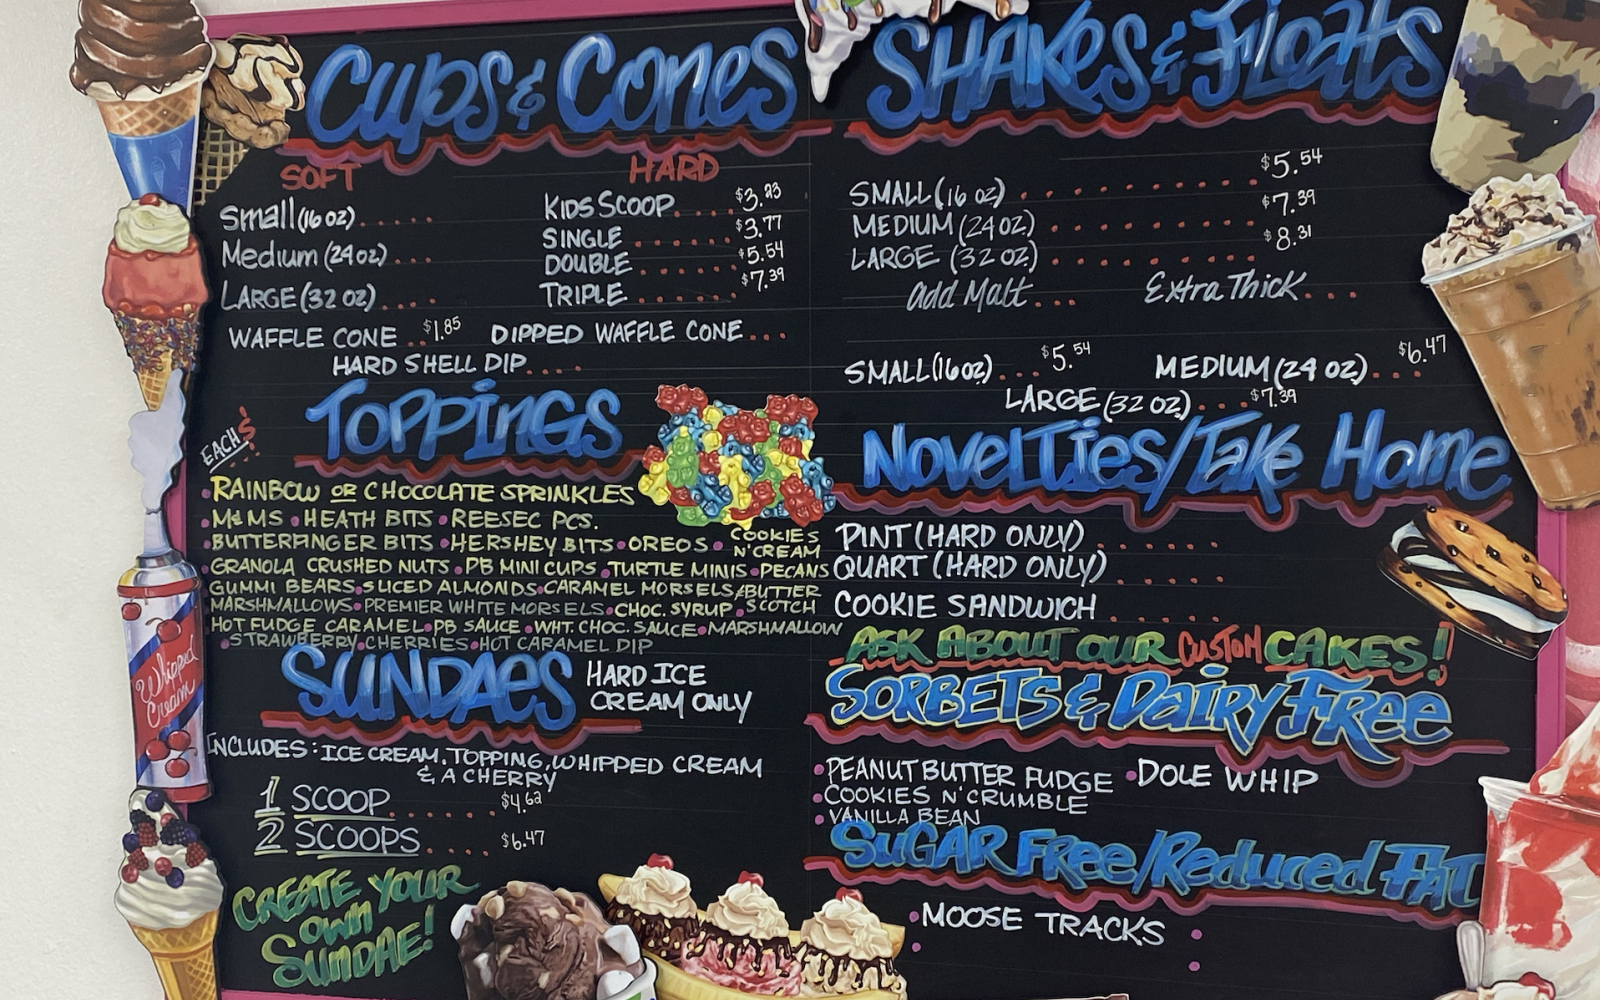 Cups & Cones
SOFT
HARD
Small (16 oz) . . . . .
Medium (24 oz) . . .
LARGE (32 oz) . . . .
KIDS SCOOP . . . . $3.23
SINGLE . . . . . . $3.77
DOUBLE . . . . . . $5.54
TRIPLE . . . . . . $7.39
WAFFLE CONE . . $1.85 DIPPED WAFFLE CONE . . .
HARD SHELL DIP . . . .
EACH $
TOPPINGS
• RAINBOW OR CHOCOLATE SPRINKLES
• M&MS • HEATH BITS • REESEC PCS.
• BUTTERFINGER BITS • HERSHEY BITS • OREOS • COOKIES N'CREAM
• GRANOLA CRUSHED NUTS • PB MINI CUPS • TURTLE MINIS • PECANS
GUMMI BEARS • SLICED ALMONDS • CARAMEL MORSELS • BUTTERSCOTCH
MARSHMALLOWS • PREMIER WHITE MORSELS • CHOC. SYRUP
HOT FUDGE CARAMEL • PB SAUCE • WHT. CHOC. SAUCE • MARSHMALLOW
• STRAWBERRY • CHERRIES • HOT CARAMEL DIP
SUNDAES HARD ICE CREAM ONLY
INCLUDES: ICE CREAM, TOPPING, WHIPPED CREAM
& A CHERRY
1 SCOOP . . . . . . $4.62
2 SCOOPS . . . . . $6.47
CREATE YOUR
OWN
SUNDAE!
Whipped
Cream
SHAKES & Floats
SMALL (16 oz) . . . . . . . . . . $5.54
MEDIUM (24 oz) . . . . . . . . . $7.39
LARGE (32 oz) . . . . . . . . . $8.31
add Malt . . . Extra Thick . . .
SMALL (16 oz) . . . $5.54 MEDIUM (24 oz) . . . $6.47
LARGE (32 oz) . . . $7.39
NOVELTIES/Take Home
PINT (HARD ONLY) . . . . . . .
QUART (HARD ONLY) . . . . . .
COOKIE SANDWICH . . . . . .
ASK ABOUT OUR CUSTOM CAKES!
SORBETS & DAIRY FREE
• PEANUT BUTTER FUDGE • DOLE WHIP
• COOKIES N' CRUMBLE
• VANILLA BEAN
SUGAR FREE/Reduced FAT
• MOOSE TRACKS